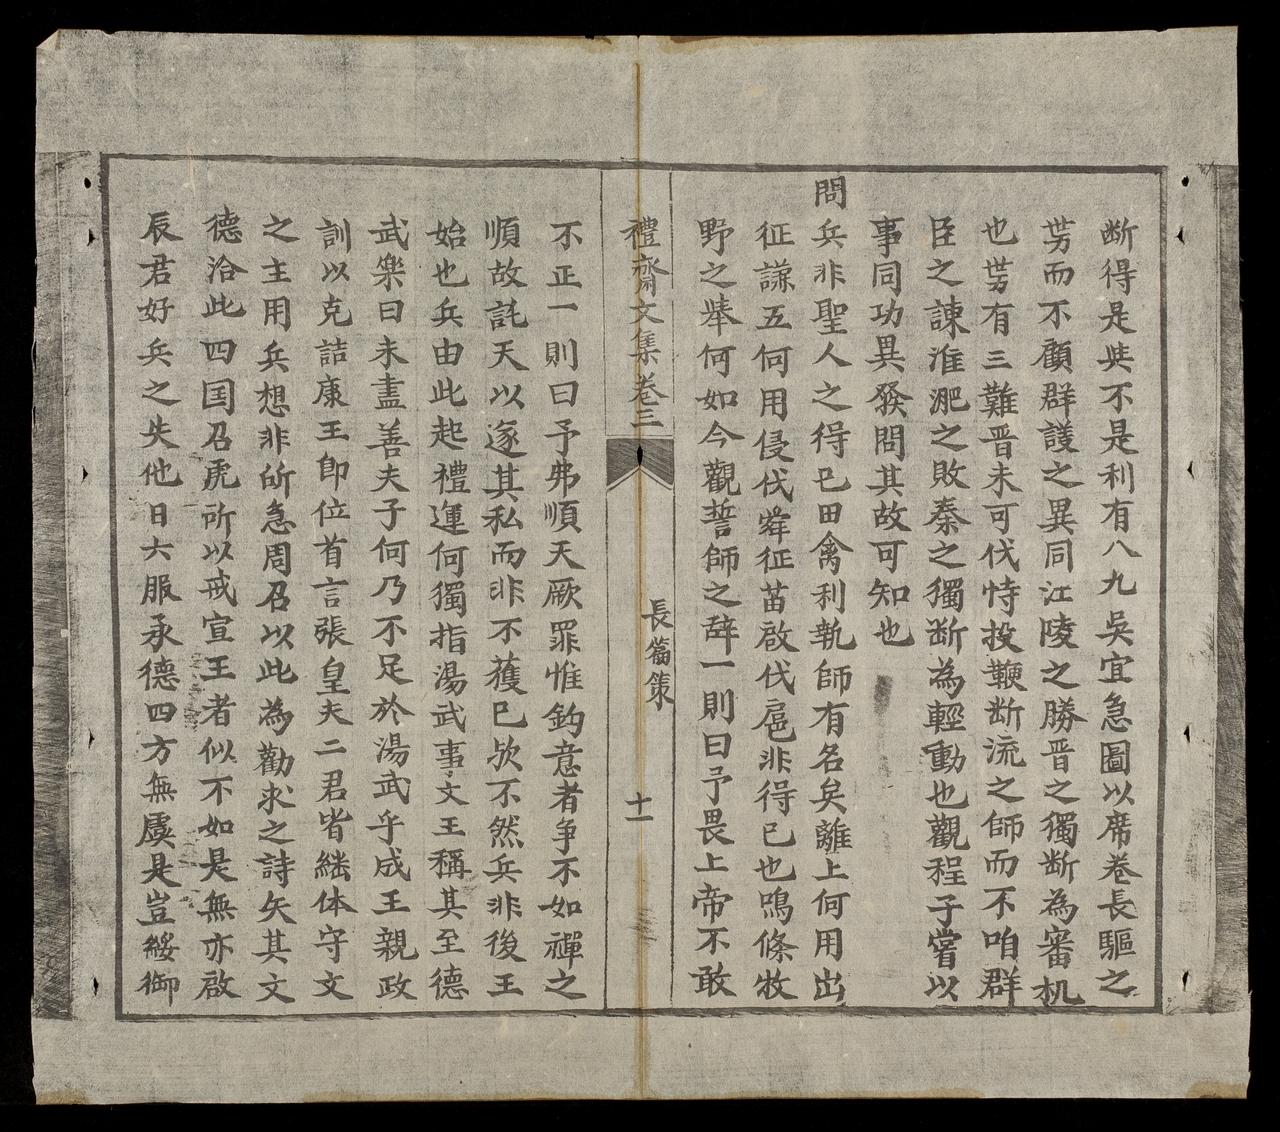 断得是歟不是利有八九吳宜急圖以席卷長驅之
势而不顧群議之異同江陵之勝晋之獨断為審机
也势有三難晋未可伐恃投鞭断流之師而不咱群
臣之諫淮淝之敗秦之獨断為輕動也觀程子嘗以
事同功異發問其故可知也
問兵非聖人之得已田禽利執師有名矣離上何用出
征謙五何用侵伐舜征苗啟伐扈非得已也鳴條牧
野之舉何如今觀誓師之辞一則曰予畏上帝不敢
禮齋文集卷三
長篇策
十一
不正一則曰予弗順天厥罪惟鈞意者争不如禪之
順故託天以遂其私而非不獲已欤不然兵非後王
始也兵由此起禮運何獨指湯武事文王稱其至德
武樂曰未盡善夫子何乃不足於湯武乎成王親政
訓以克詰康王卽位首言張皇夫二君皆継体守文
之主用兵想非所急周召以此為勸求之詩矢其文
德洽此四国召虎所以戒宣王者似不如是無亦啟
辰君好兵之失他日六服承德四方無虞是豈綏御